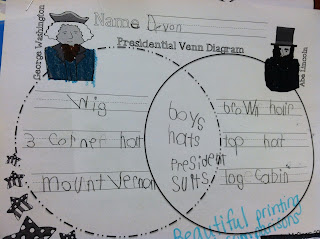 Name Devon
Presidential Venn Diagram
George Washington
Abe Lincoln
Wig
3 Corner hat
Mount Vernon
boys
hats
President
Suits
brown hair
top hat
log Cabin
Beautiful printing